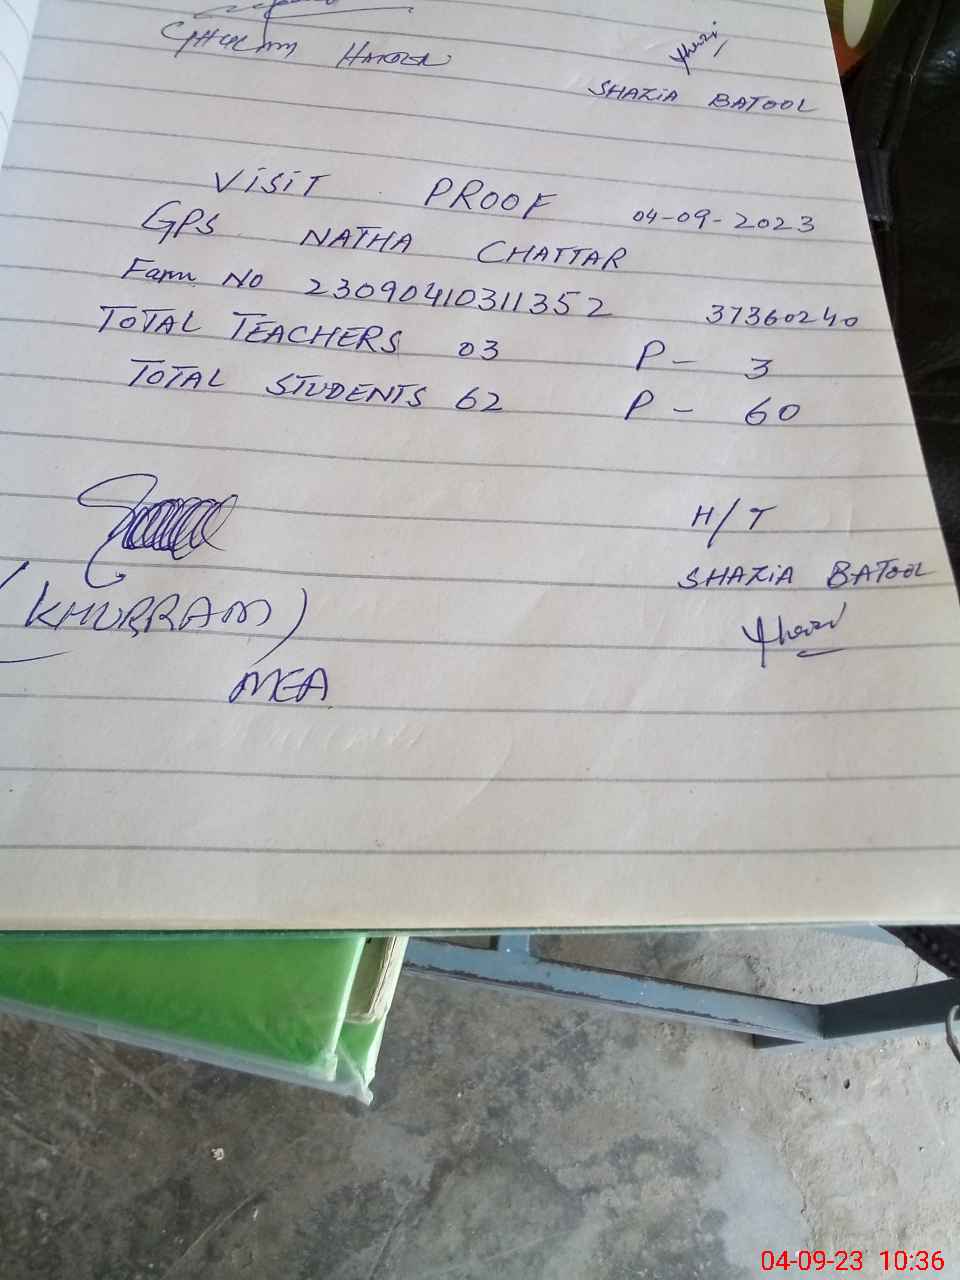 GHULAM HAIDER
SHAZiA BATOOL
ViSiT PROOF 04-09-2023
GPS NATHA CHATTAR
Farm No 23090410311352 37360240
TOTAL TEACHERS 03 P - 3
TOTAL STUDENTS 62 P - 60
H/T
SHAZiA BATOOL
(KHURRAM)
MEA
04-09-23 10:36